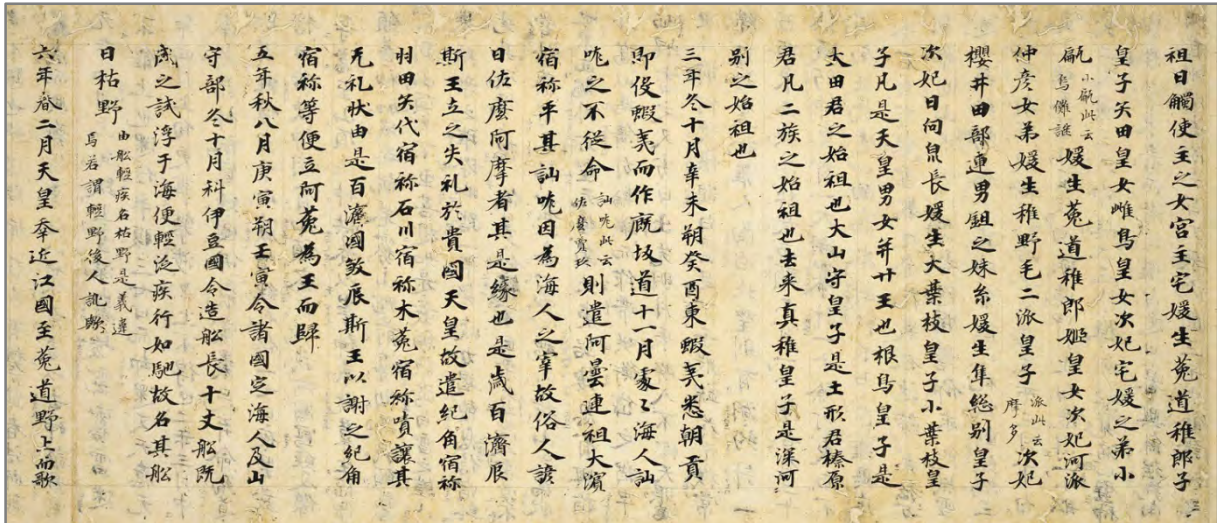 祖日觸使主之女宮主宅媛生菟道稚郎子
皇子矢田皇女雌鳥皇女次妃宅媛之弟小
甂小甂此云烏儺謎媛生菟道稚郎姫皇女次妃河派
仲彦女弟媛生稚野毛二派皇子派此云摩多次妃
櫻井田部連男鉏之妹糸媛生隼総别皇子
次妃日向泉長媛生大葉枝皇子小葉枝皇
子凡是天皇男女并廿王也根鳥皇子是
大田君之始祖也大山守皇子是土形君榛原
君凡二族之始祖也去来真稚皇子是深河
别之始祖也
三年冬十月辛未朔癸酉東蝦夷悉朝貢
即役蝦夷而作厩坂道十一月處〻海人訕
哤之不從命訕哤此云佐麼賣玖則遣阿曇連祖大濱
宿祢平其訕哤因為海人之宰故俗人諺
曰佐麼阿摩者其是縁也是歳百濟辰
斯王立之失礼於貴國天皇故遣紀角宿祢
羽田矢代宿祢石川宿祢木菟宿祢嘖讓其
无礼状由是百濟國煞辰斯王以謝之紀角
宿祢等便立阿菟為王而歸
五年秋八月庚寅朔壬寅令諸國定海人及山
守部 冬十月科伊豆國令造舩長十丈舩既
成之試浮于海便輕泛疾行如馳故名其舩
曰枯野由舩輕疾名枯野是義違焉若謂輕野後人訛歟
六年春二月天皇幸近江國至菟道野上而歌